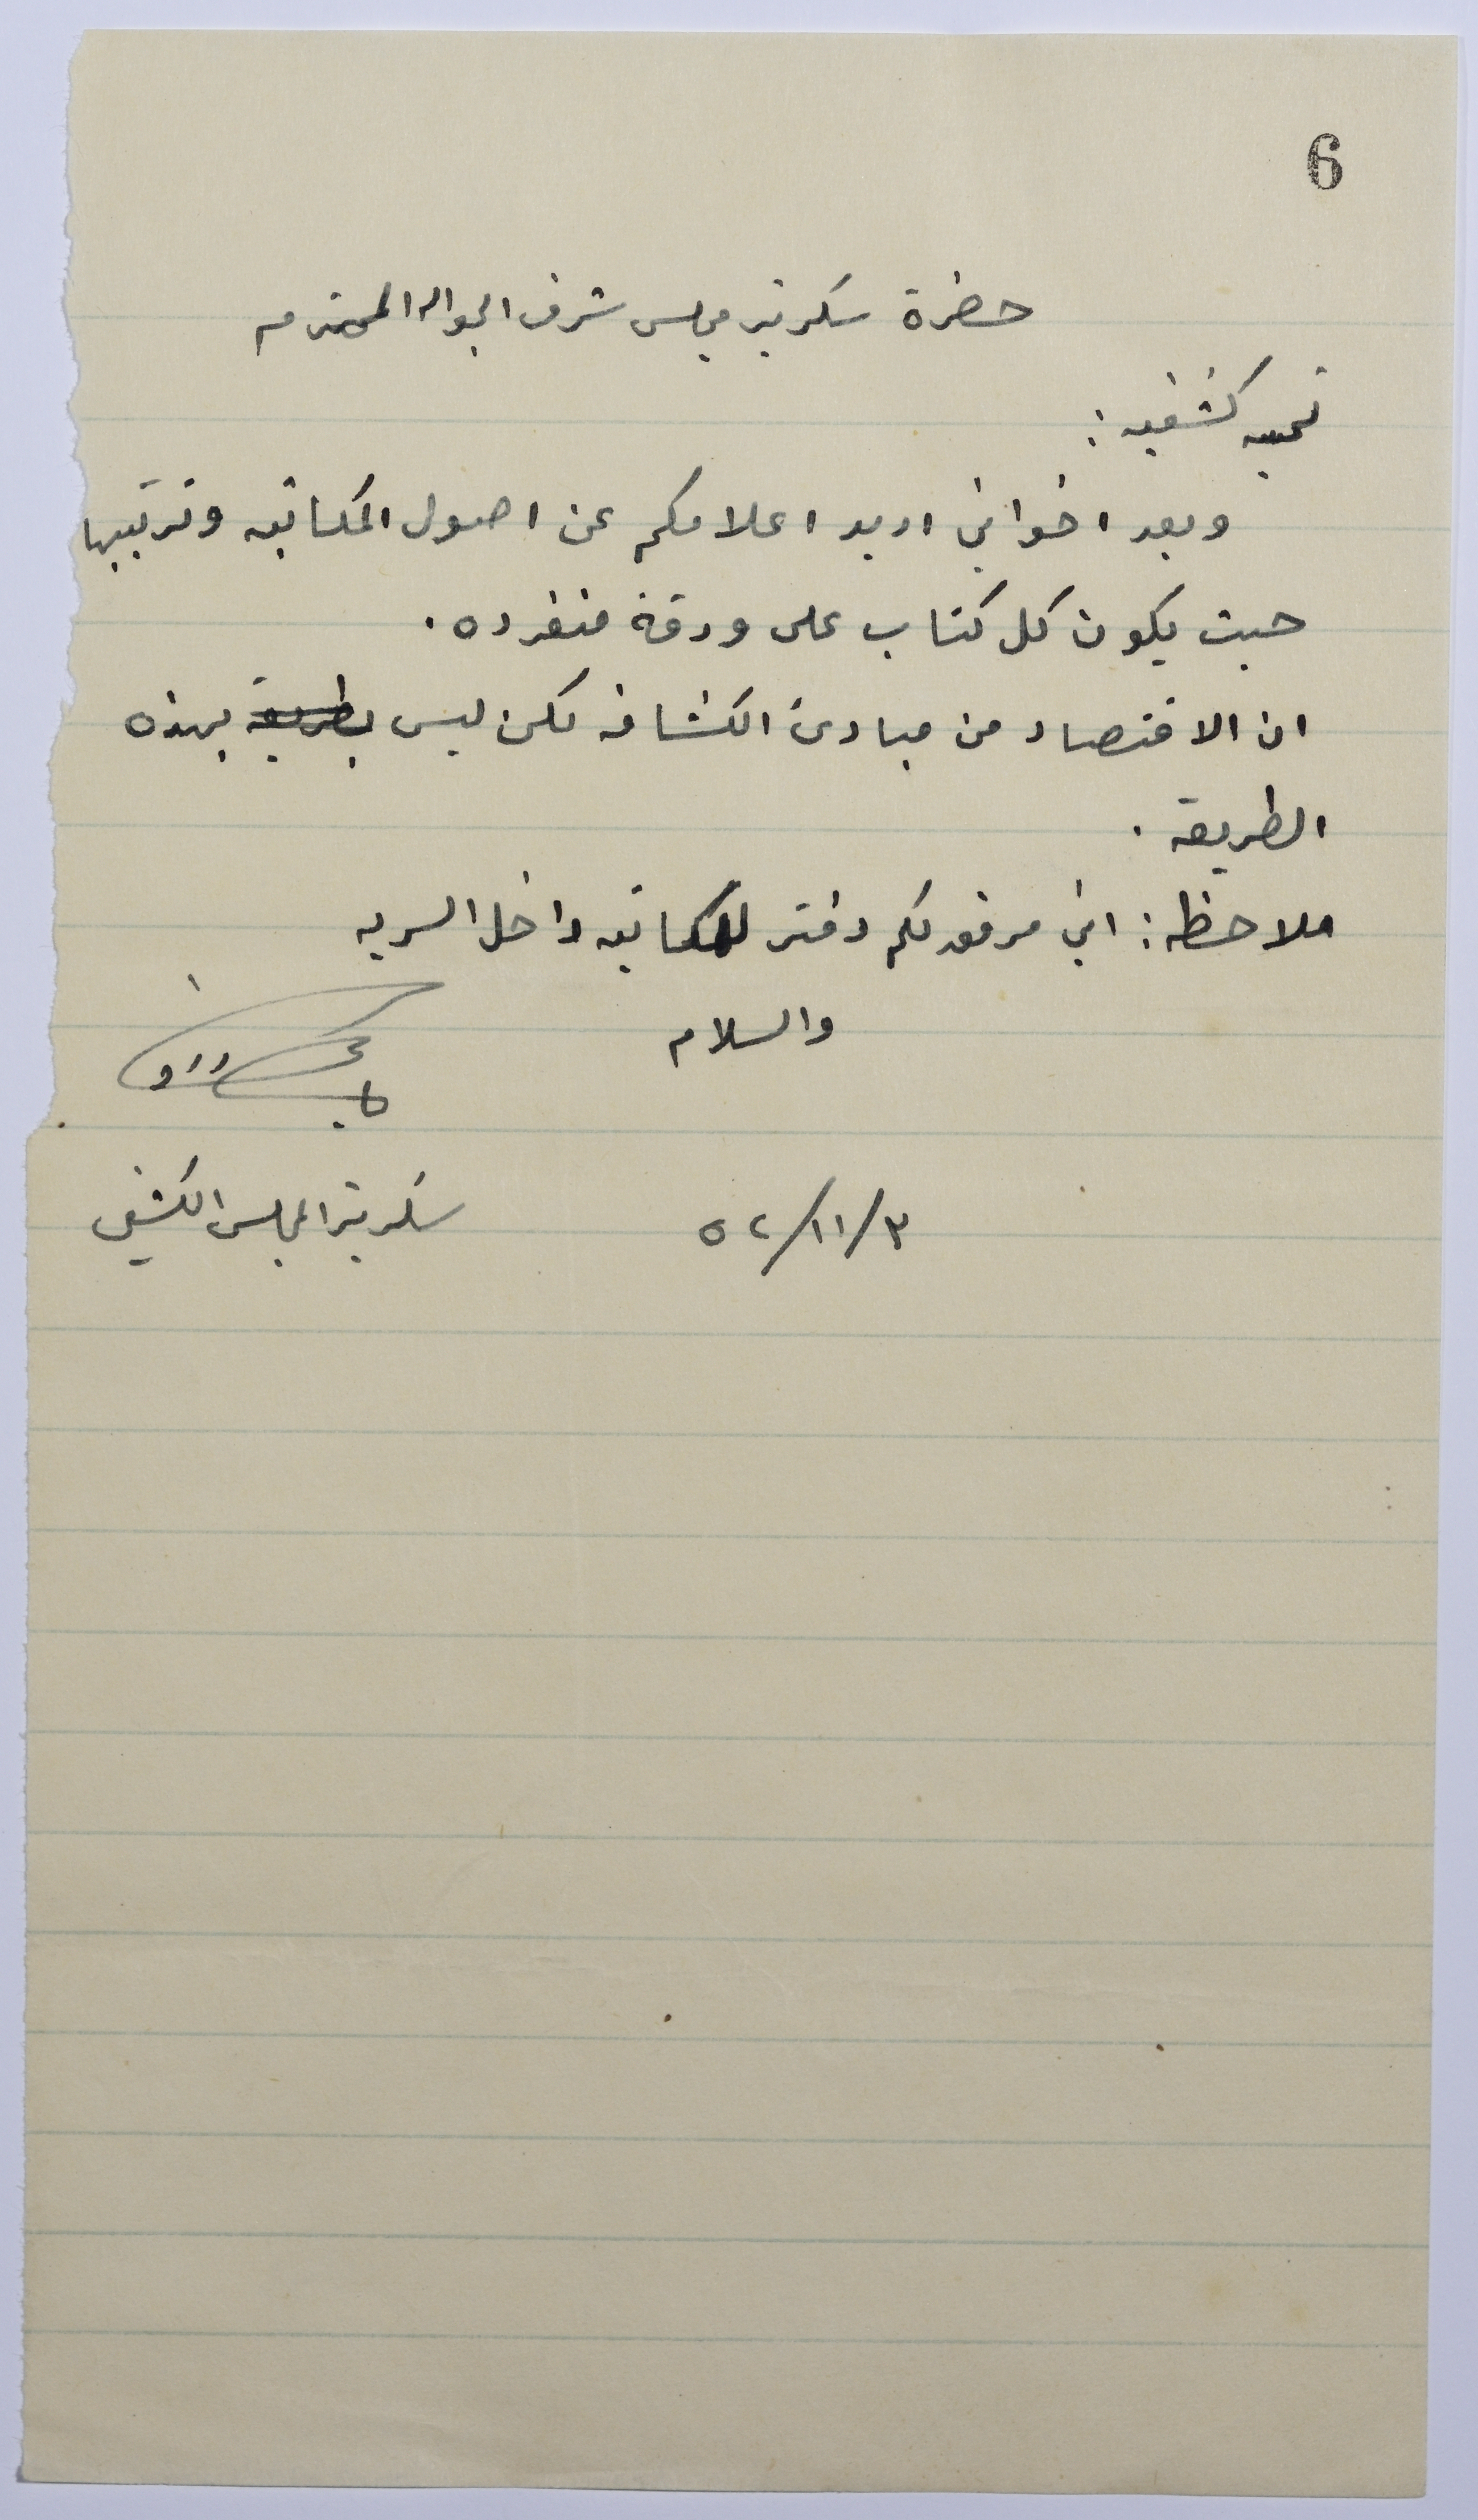 6
حضرة سكرتير مجلس شرف الجواله المحترم
تحيه كشفيه :
وبعد اخواني اريد اعلامكم عن اصول المكاتبه وترتيبها
حيث يكون كل كتاب على ورقة منفرده .
ان الاقتصاد من مبادئ الكشافه لكن ليس بطريقة بهذه
الطريقه .
ملاحظه : اني مرفق لكم دفتر للمكاتبه داخل السريه
والسلام
٥٢/١١/٣
سكرتير المجلس الكشفي